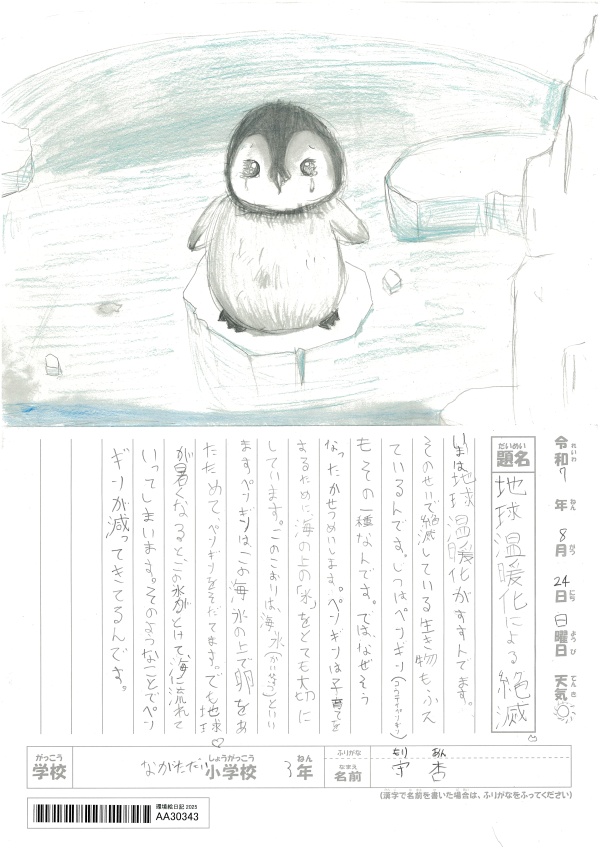 令和7年8月24日日曜日 天気
れいわ ねん がつ にち ようび てんき
だいめい
題名 地球温暖化による絶滅
いまは地球温暖化がすすんでます。
そのせいで絶滅している生き物もふえ
ているんです。じつはペンギン
もその一種なんです。ではなぜそう
なったかせつめいします。ペンギンは子育てを
まるために、海の上の「氷」をとても大切に
しています。このこおりは、海氷(かいひょう)といい
ますペンギンはこの海氷の上で卵をあ
たためてペンギンをそだてます。でも地球
が暑くなるとこの氷がとけて海に流れて
いってしまいます。そのようなことでペン
ギンが減ってきてるんです。
がっこう しょうがっこう ねん
学校 ながただい小学校 3年
ふりがな もり あん
なまえ
名前 守 杏
(漢字で名前を書いた場合は、ふりがなをふってください)
環境絵日記 2025
AA30343